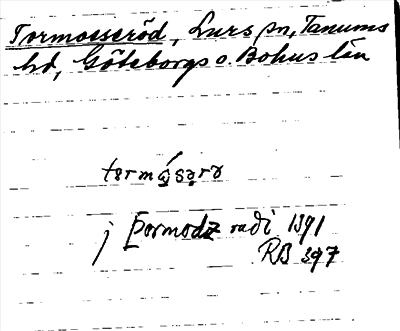 Tormoseröd, Lurs sn, Tanums
hd, Göteborgs o. Bohus län
tormǿsərə
j Þormodz rudi 1391
RB 397